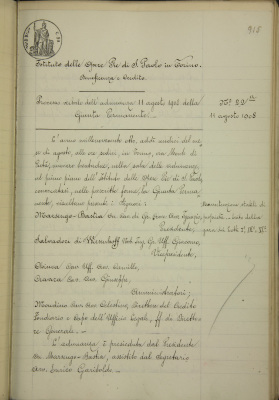 915
Istituto delle Opere Pie di S. Paolo in Torino.
Beneficenza e Credito.
Processo verbale dell'adunanza 11 agosto 1908 della
Giunta Permanente.
11 agosto 1908
L'anno millenovecento otto, addì undici del me-
se di agosto, alle ore sedici, in Torino, via Monte di
Pietà, numero trentadue, nella sala delle adunanze,
al primo piano dell'Istituto delle Opere Pie di S. Paolo,
convocatasi, nelle prescritte forme, la Giunta Perma-
nente, risultano presenti i Signori:
Marsengo-Bastia
Presidente
Salvadori di Wiesenhoff Nob. Ing. Gr. Uff. Giacomo,
Vicepresidente,
Chioma Avv. Uff. Camillo,
Cravera Cav. Giuseppe,
Amministratori;
Mandina Avv. Celestino, Direttore del Credito
Fondiario e Capo dell'Ufficio Legale, ff. di Diretto-
re Generale.
L'adunanza è presieduta dal Presidente
Marsengo-Bastia, assistito dal Segretario
Avv. Enrico Gariboldi.